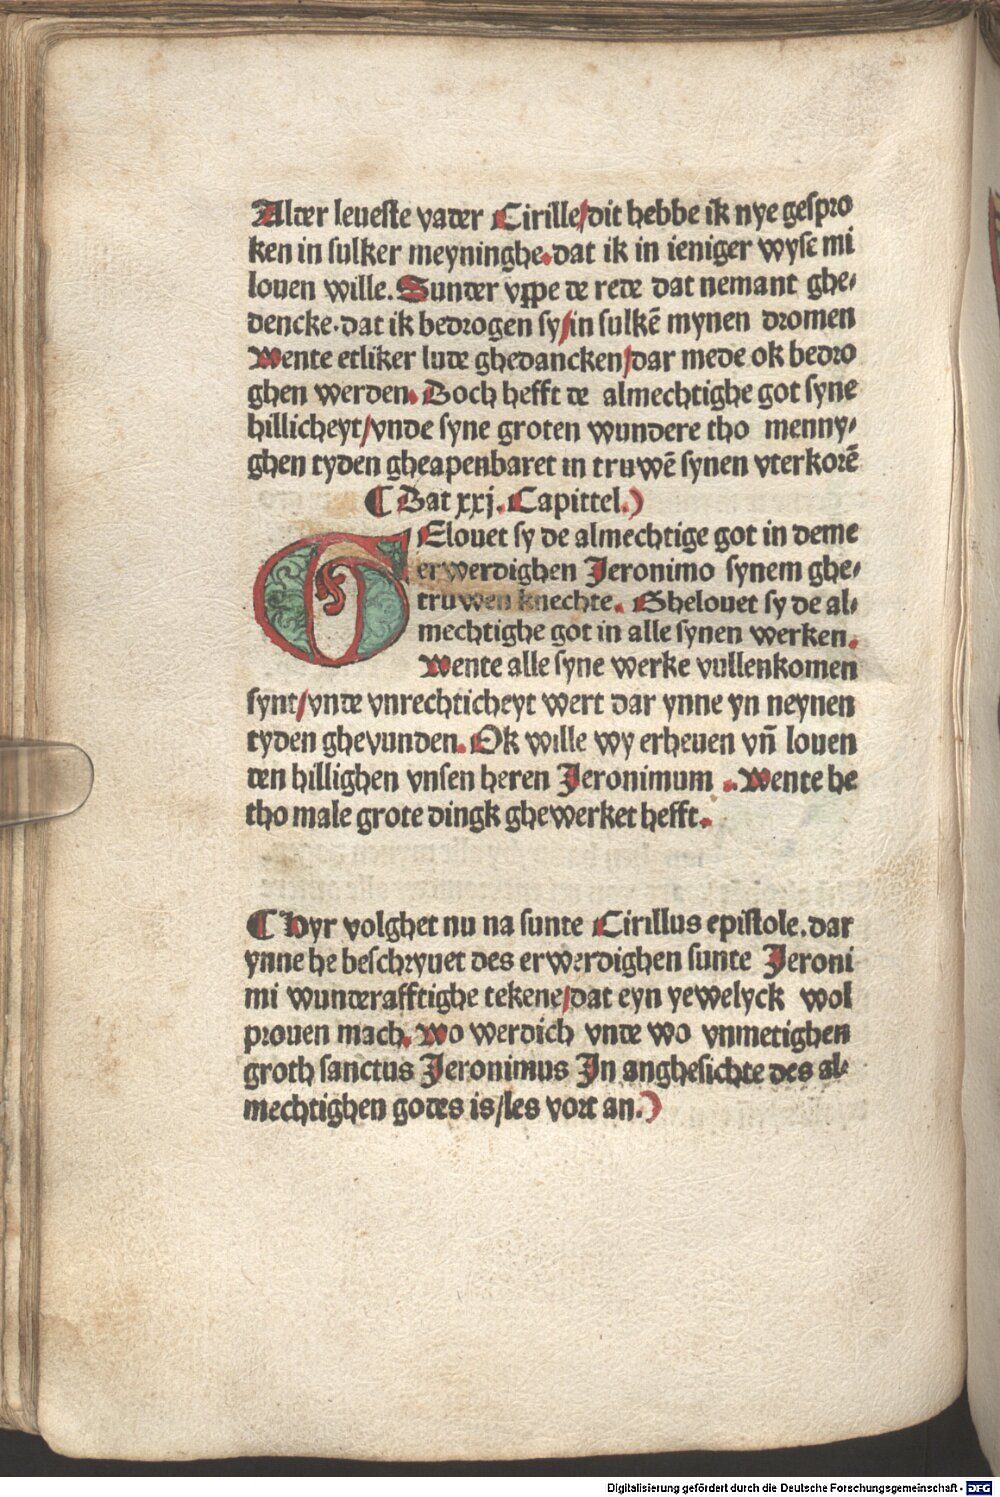 Alder leueste vader Cirille/dit hebbe ik nye gespro
ken in sulker meyninghe.dat ik in ieniger wyse mi
louen wille. Sunder vppe de rede dat nemant ghe⸗
dencke.dat ik bedrogen sy/in sulkē mynen dromen
Wente etliker lude ghedancken/dar mede ok bedro
ghen werden. Doch hefft de almechtighe got syne
hillicheyt/vnde syne groten wundere tho menny⸗
ghen tyden gheapenbaret in truwē synen vterkorē
¶ Dat xxj. Capittel.)
GElouet sy de almechtige got in deme
erwerdighen Jeronimo synem ghe⸗
truwen knechte. Ghelouet sy de al⸗
mechtighe got in alle synen werken.
Wente alle syne werke vullenkomen
synt/vnde vnrechticheyt wert dar ynne yn neynen
tyden ghevunden. Ok wille wy erheuen vn̄ louen
den hillighen vnsen heren Jeronimum . Wente he
tho male grote dingk ghewerket hefft.
¶ Hyr volghet nu na sunte Cirillus epistole.dar
ynne he beschryuet des erwerdighen sunte Jeroni
mi wunderafftighe tekene/dat eyn yewelyck wol
prouen mach. wo werdich vnde wo vnmetighen
groth sanctus Jeronimus In anghesichte des al⸗
mechtighen godes is/les vort an.)
Digitalisierung gefördert durch die Deutsche Forschungsgemeinschaft - DFG